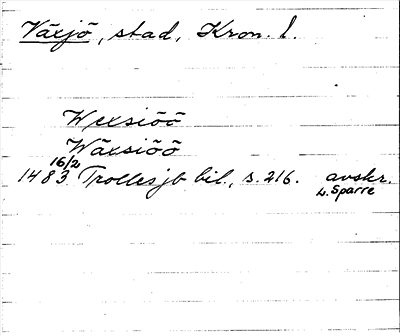 Växjö, stad, Kron. l.
Wexsiöö
Wäxsiöö
1483 16/2 Trolles jb bil., s. 216. avskr.
L. Sparre